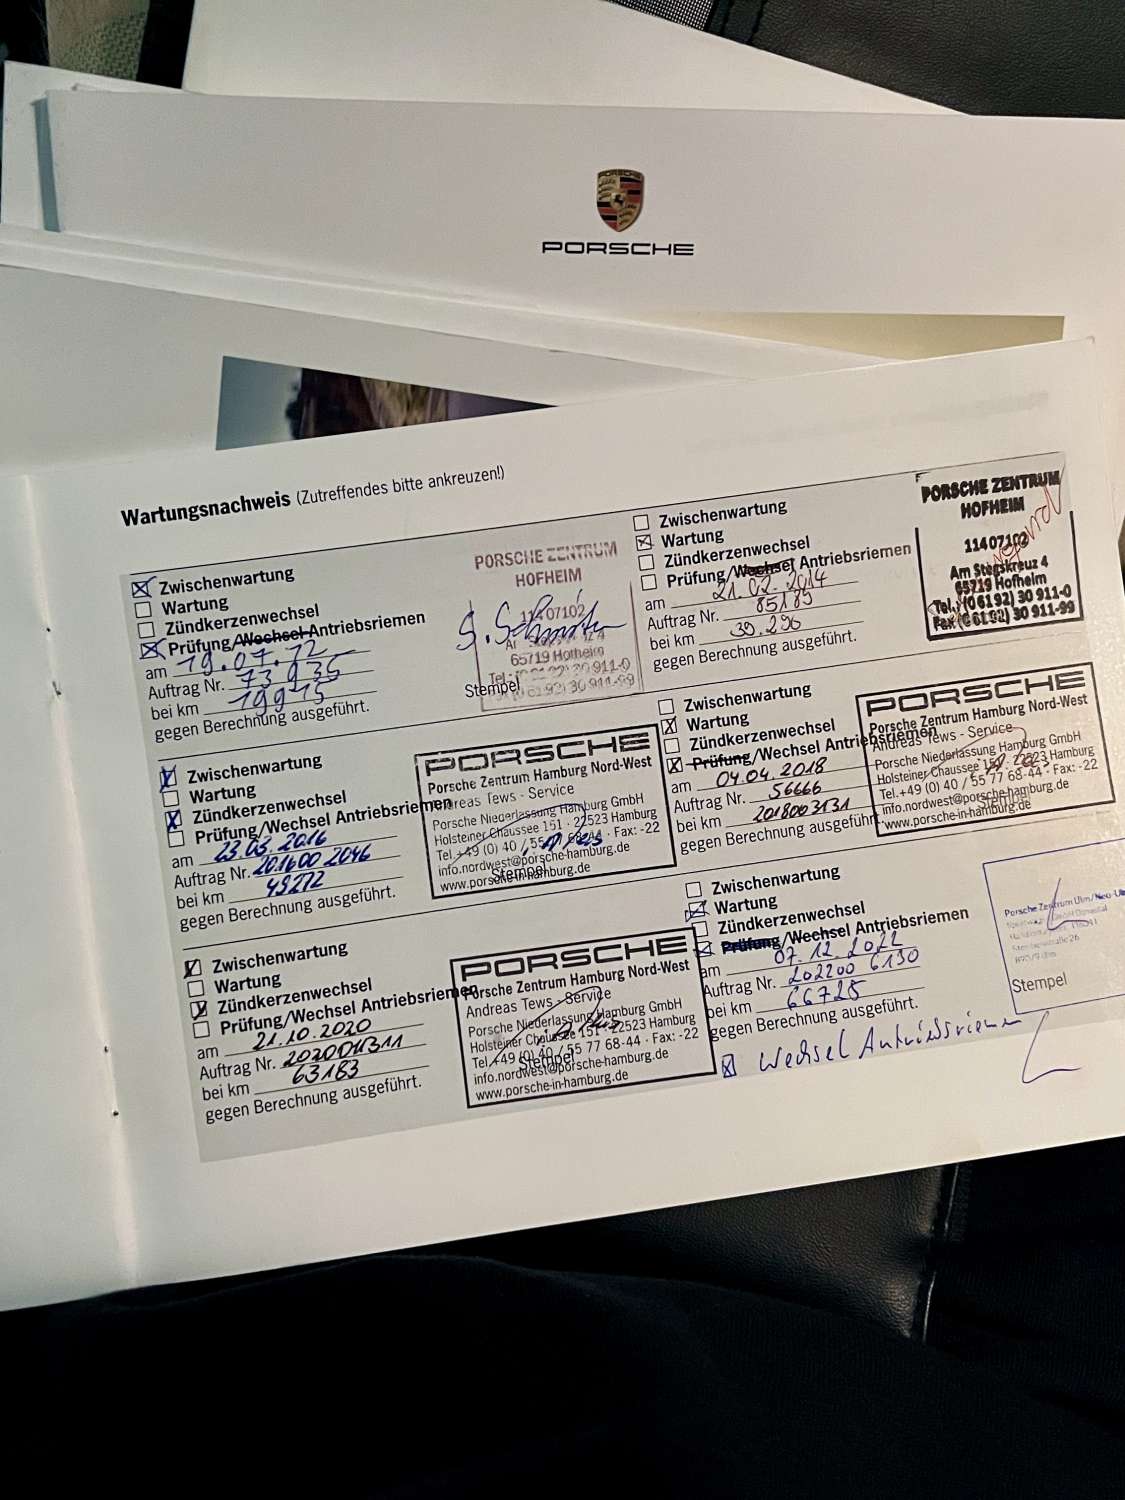 PORSCHE
PORSCHE
Wartungsnachweis (Zutreffendes bitte ankreuzen!)
Zwischenwartung
Wartung
Zündkerzenwechsel
Prüfung/Wechsel Antriebsriemen
am 19.07.12
Auftrag Nr. 73936
bei km 19915
gegen Berechnung ausgeführt.
PORSCHE ZENTRUM
HOFHEIM
11407102
65719 Hofheim
Stempel
Zwischenwartung
Wartung
Zündkerzenwechsel
Prüfung/Wechsel Antriebsriemen
am 21.02.2014
Auftrag Nr. 85189
bei km 39.296
gegen Berechnung ausgeführt.
PORSCHE ZENTRUM
HOFHEIM
11407102
Am Stegskreuz 4
65719 Hofheim
Tel. (0 61 92) 30 911-0
Fax (0 61 92) 30 911-99
Zwischenwartung
Wartung
Zündkerzenwechsel
Prüfung/Wechsel Antriebsriemen
am 23.03.2016
Auftrag Nr. 201600 2046
bei km 49272
gegen Berechnung ausgeführt.
PORSCHE
Porsche Zentrum Hamburg Nord-West
Andreas Tews - Service
Porsche Niederlassung Hamburg GmbH
Holsteiner Chaussee 151 · 22523 Hamburg
Tel.+49 (0) 40 / 55 77 68-44 · Fax: -22
info.nordwest@porsche-hamburg.de
www.porsche-in-hamburg.de
Stempel
Zwischenwartung
Wartung
Zündkerzenwechsel
Prüfung/Wechsel Antriebsriemen
am 04.04.2018
Auftrag Nr. 56666
bei km 2018003131
gegen Berechnung ausgeführt.
PORSCHE
Porsche Zentrum Hamburg Nord-West
Andreas Tews - Service
Porsche Niederlassung Hamburg GmbH
Holsteiner Chaussee 151 · 22523 Hamburg
Tel.+49 (0) 40 / 55 77 68-44 · Fax: -22
info.nordwest@porsche-hamburg.de
www.porsche-in-hamburg.de
Stempel
Zwischenwartung
Wartung
Zündkerzenwechsel
Prüfung/Wechsel Antriebsriemen
am 21.10.2020
Auftrag Nr. 2020011311
bei km 63183
gegen Berechnung ausgeführt.
PORSCHE
Porsche Zentrum Hamburg Nord-West
Andreas Tews - Service
Porsche Niederlassung Hamburg GmbH
Holsteiner Chaussee 151 · 22523 Hamburg
Tel.+49 (0) 40 / 55 77 68-44 · Fax: -22
info.nordwest@porsche-hamburg.de
www.porsche-in-hamburg.de
Stempel
Zwischenwartung
Wartung
Zündkerzenwechsel
Prüfung/Wechsel Antriebsriemen
am 07.12.2022
Auftrag Nr. 202200 6130
bei km 66725
gegen Berechnung ausgeführt.
Porsche Zentrum Ulm/Neu-Ulm
Stempel
Wechsel Antriebsriemen